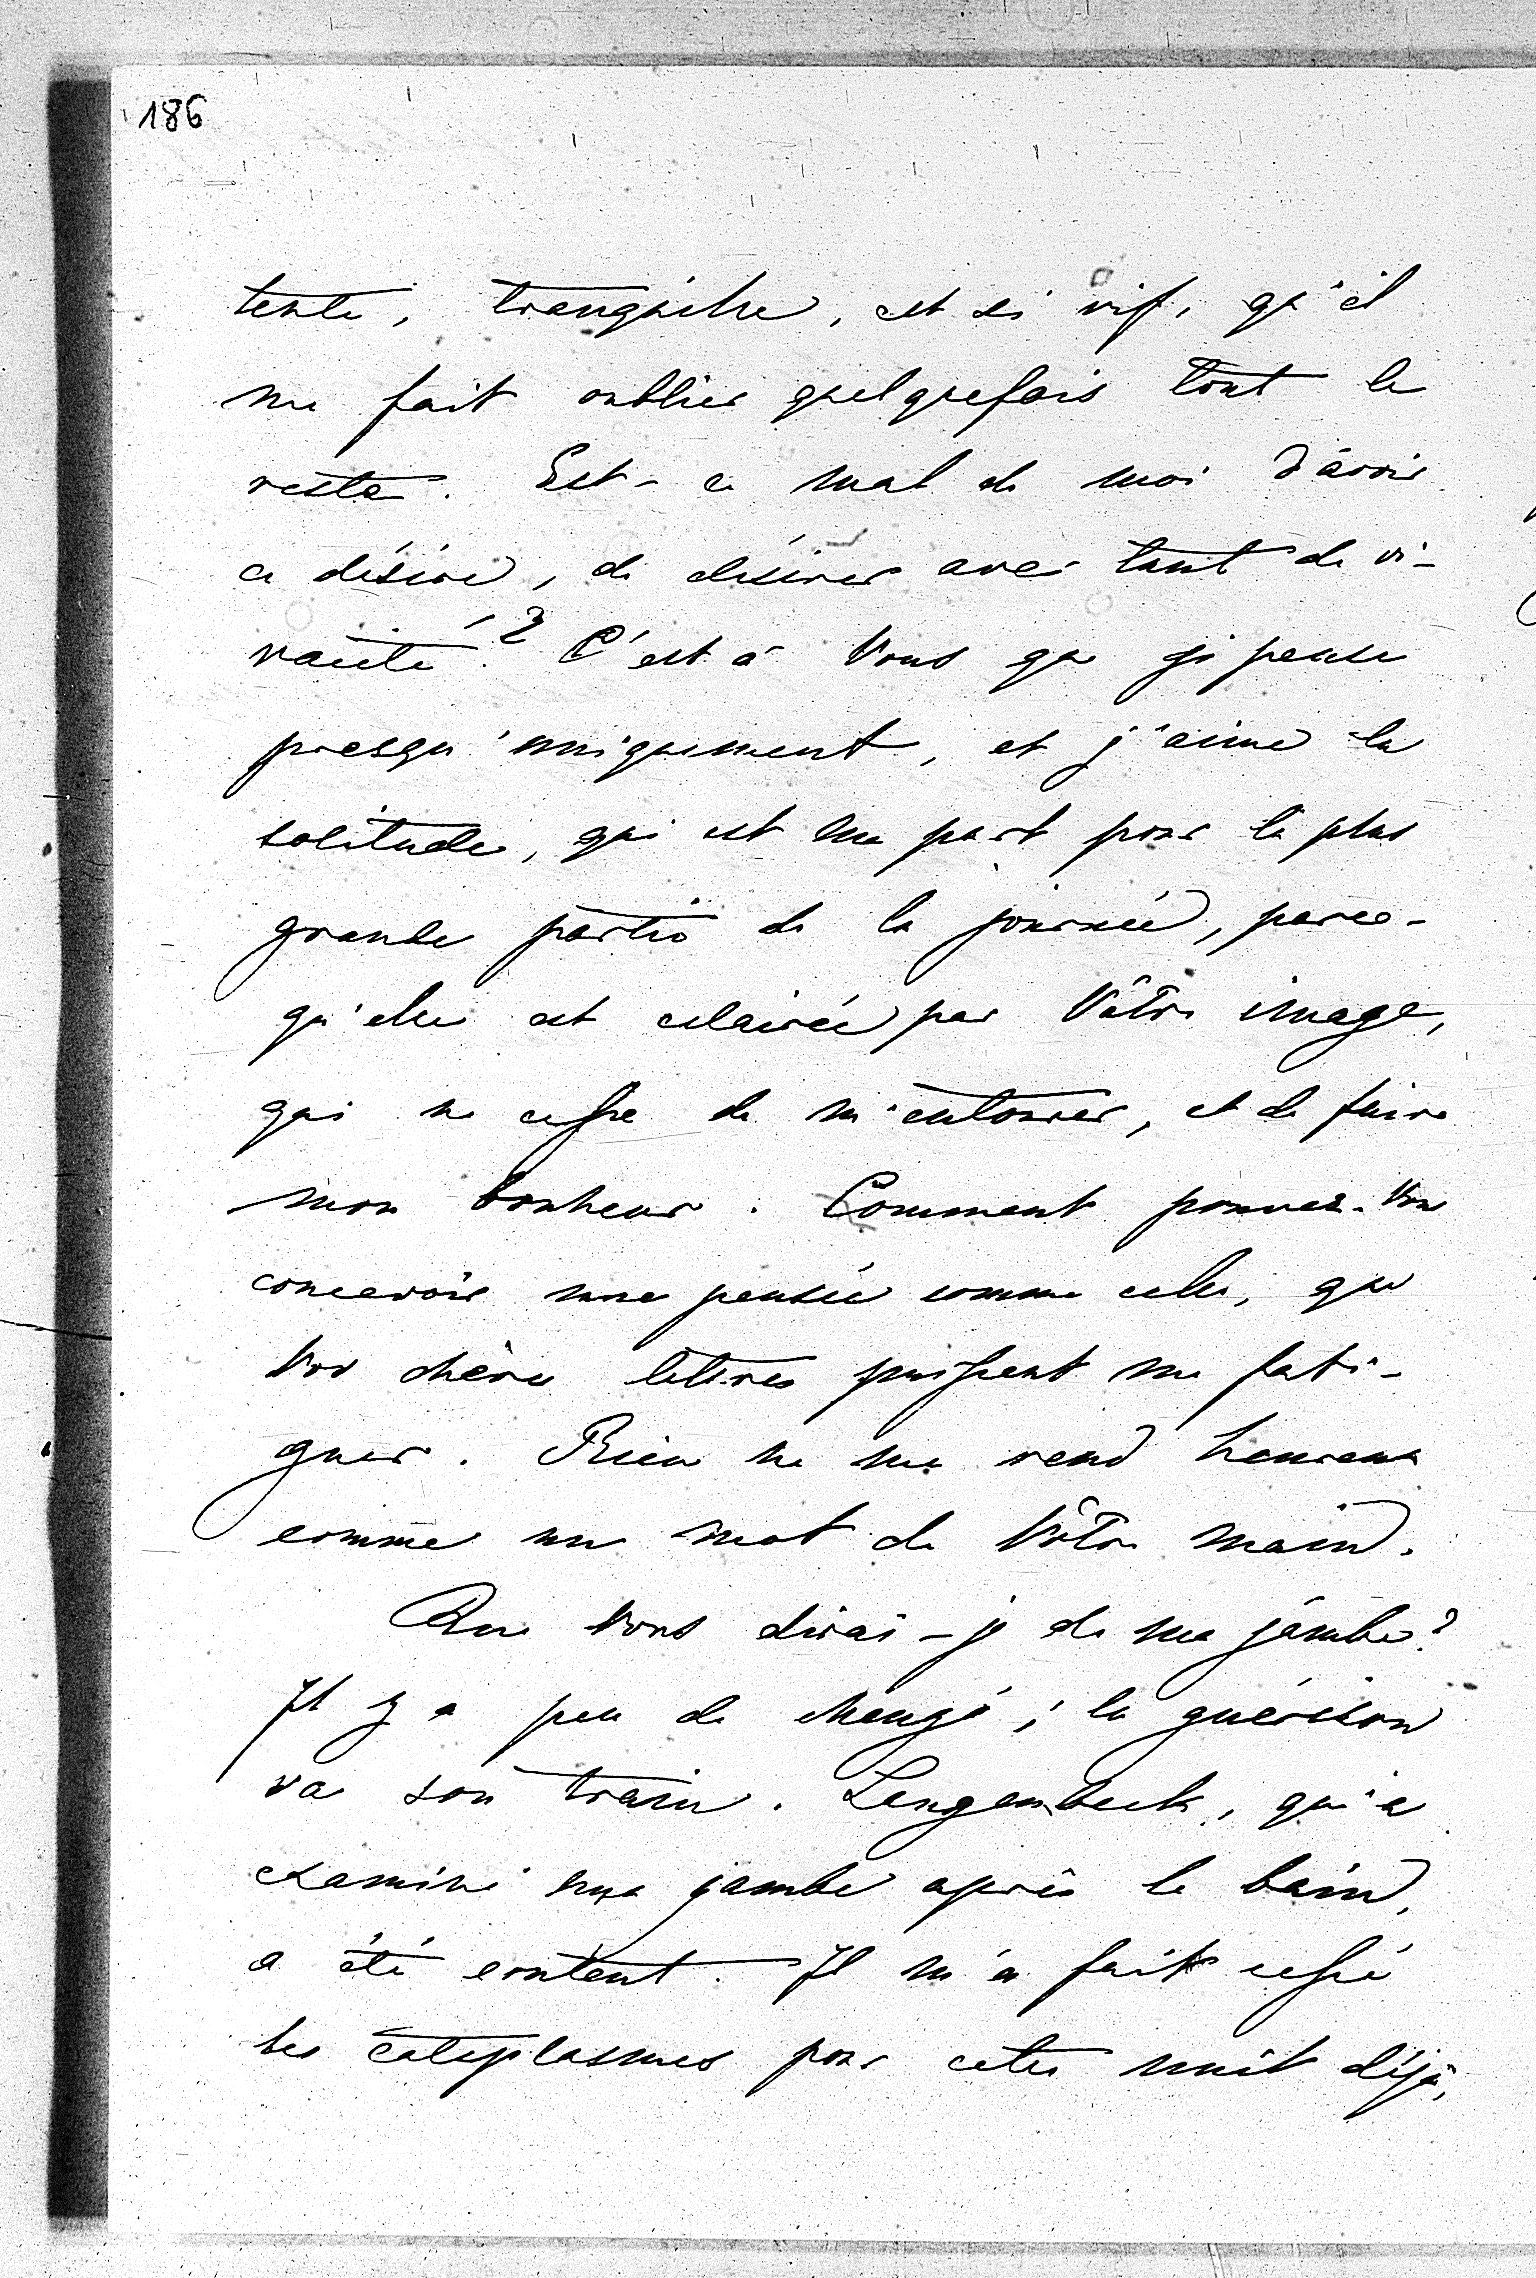 186
tente, tranquille, est si vif, qu'il
me fait oublier quelquefois tout le
reste. Est-ce mal de moi d'avoir
ce désire, de désirer avec tant de vi-
vacité? C'est à Vous que je pense
presqu'uniquement, et j'aime la
solitude, qui est ma part pour la plus
grande partie de la journée, parce-
qu'elle est eclairée par Vôtre image,
qui ne cesse de m'entourer, et de faire
mon bonheur. Comment pouvez-Vous
concevoir une pensée comme celle, que
Vos chères lettres puissent me fati-
guer. Rien ne me rend heureux
comme un mot de Vôtre main.
Que Vous dirai-je de ma jambe?
Il y a peu de changé; la guérison
va son train. Langenbeck, qui a
examiné ma jambe après le bain,
a été content. Il m'a fait cessé
les cataplasmes pour cette nuit déjà,